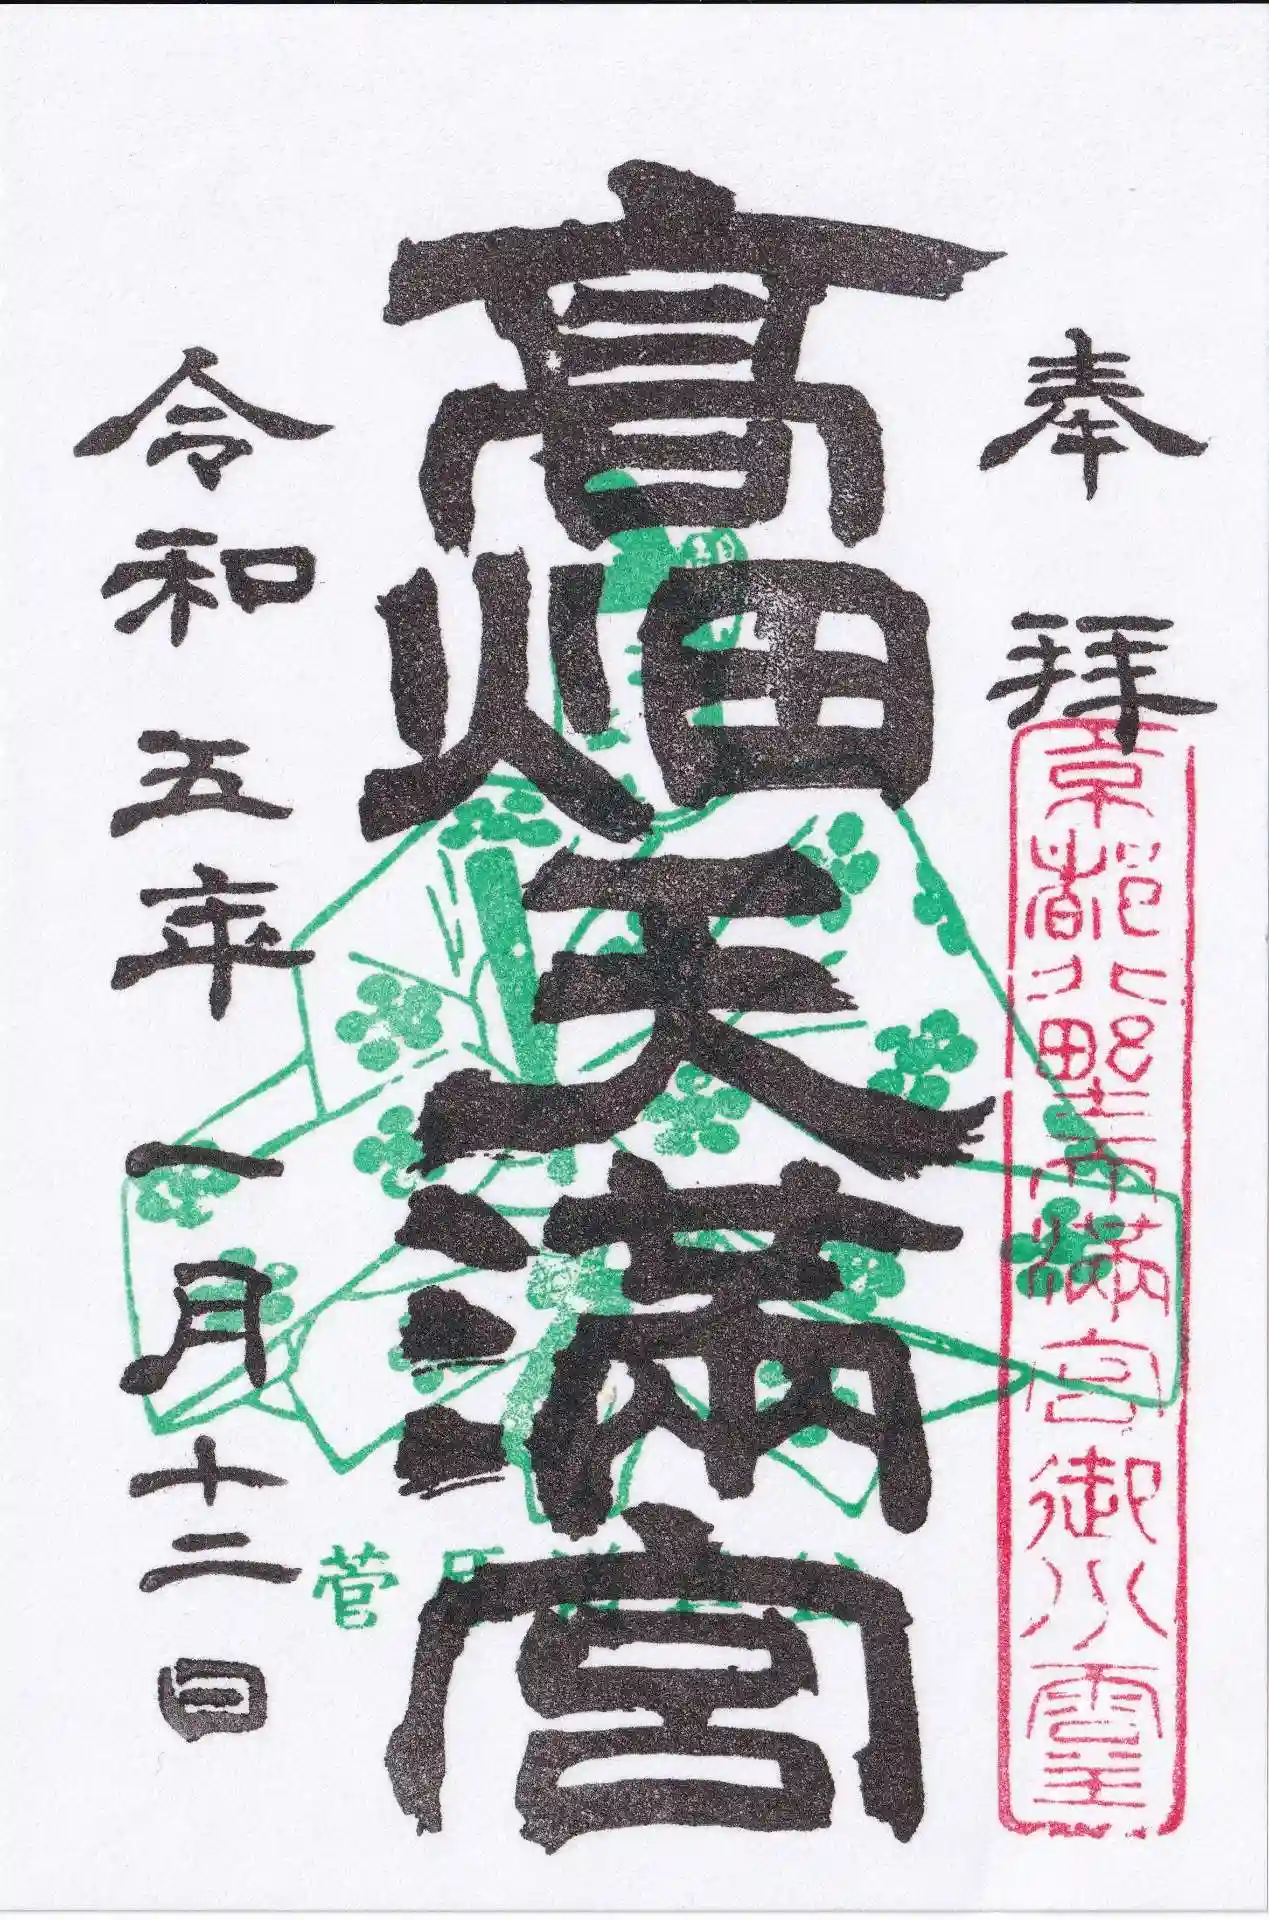 奉拝
京都北野天満宮御分霊
髙畑天満宮
令和五年一月十二日
菅